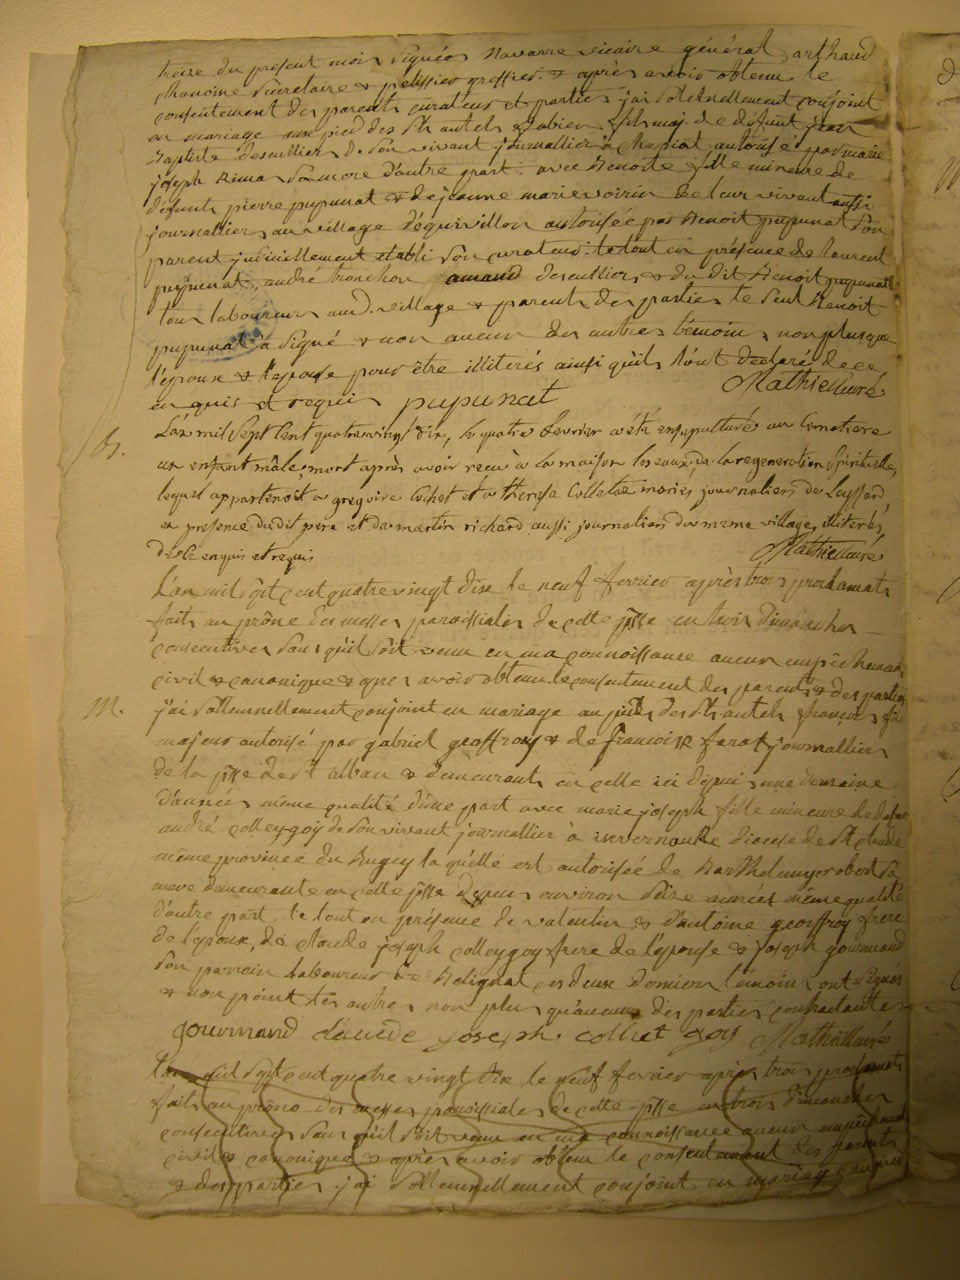 treize du present mois signées Navarre vicaire général, arthaud
Chanoine Secretaire & pelissier greffier. & après avoir obtenu le
consentement des parents curateurs et parties j'ai solennellement conjoint
en mariage aux pied des Sts autels fabien fils maj. de défunt jean
Baptiste descuillier de son vivant journallier à autorisé par marie
joseph sa mere d'autre part: avec Benoite fille mineure de
défunts pierre pupunat & de jeanne marie voirin de leur vivant aussi
journallier au village d'équivillon autorisée par Benoit pupunat son
parent juridiellement etabli son curateur: le tout en présence de laurent
pupunat, andré tronchon amand descuillier, & du dit Benoit pupunat
tous laboureurs aud. village & parents des parties le seul Benoit
pupunat à signé & non aucun des autres témoins non plus que
l'épouse & l'epoux pour être illiterés ainsi qu'ils l'ont declaré de ce
enquis et requis pupunat Mathieu curé
L'an mil sept cent quatrevingt dix, le quatre fevrier a été ensepulturé au cimetiere
un enfant mâle, mort après avoir reçu à la maison les eaux de la regeneration spirituelle,
lequel appartenoit a gregoire Cochet et a therese Colletaz mariés journaliers de Lussard
en presence dudit pere et de martin richard aussi journalier du meme village, illiterés,
de ce enquis et requis Mathieu curé
L'an mil sept cent quatre vingt dix le neuf fevrier après trois proclamats
faits au prône des messes paroissiales de cette psse en trois dimanches
consecutives sans qu'il soit venu en ma connoissance aucun empêchement
civil & canonique & après avoir obtenu le consentement des parents & des parties
M. j'ai solennellement conjoint en mariage au pieds des Sts autels françois fils
majeur autorisé par gabriel geoffroy & de francoise farat journalliers
de la psse de st alban & demeurants en celle ci depuis une
d'années même qualité d'une part avec marie joseph fille mineure de defunt
andré colleygoy de son vivant journallier à diocese de St claude
même province du Bugey laquelle est autorisée de Barthelemye robert sa
mere demeurante en cette psse depuis environ seize années même qualité
d'autre part. le tout en présence de valentin & d'antoine geoffroy frere
de l'epoux, de claude joseph colleygoy frere de l'épouse & joseph gourmand
son parrain laboureur à Belignat ces deux derniers témoins ont signés
& non point les autres non plus qu'aucun des parties contractantes
gourmand claude joseph collet goy Mathieu curé
L'an mil sept cent quatre vingt dix le neuf fevrier après trois proclamats
faits au prône des messes paroissiales de cette psse en trois dimanches
consecutives sans qu'il soit venu en ma connoissance aucun empêchement
civil & canonique & après avoir obtenu le consentement des parents
& des parties j'ai solennellement conjoint en mariage au pied